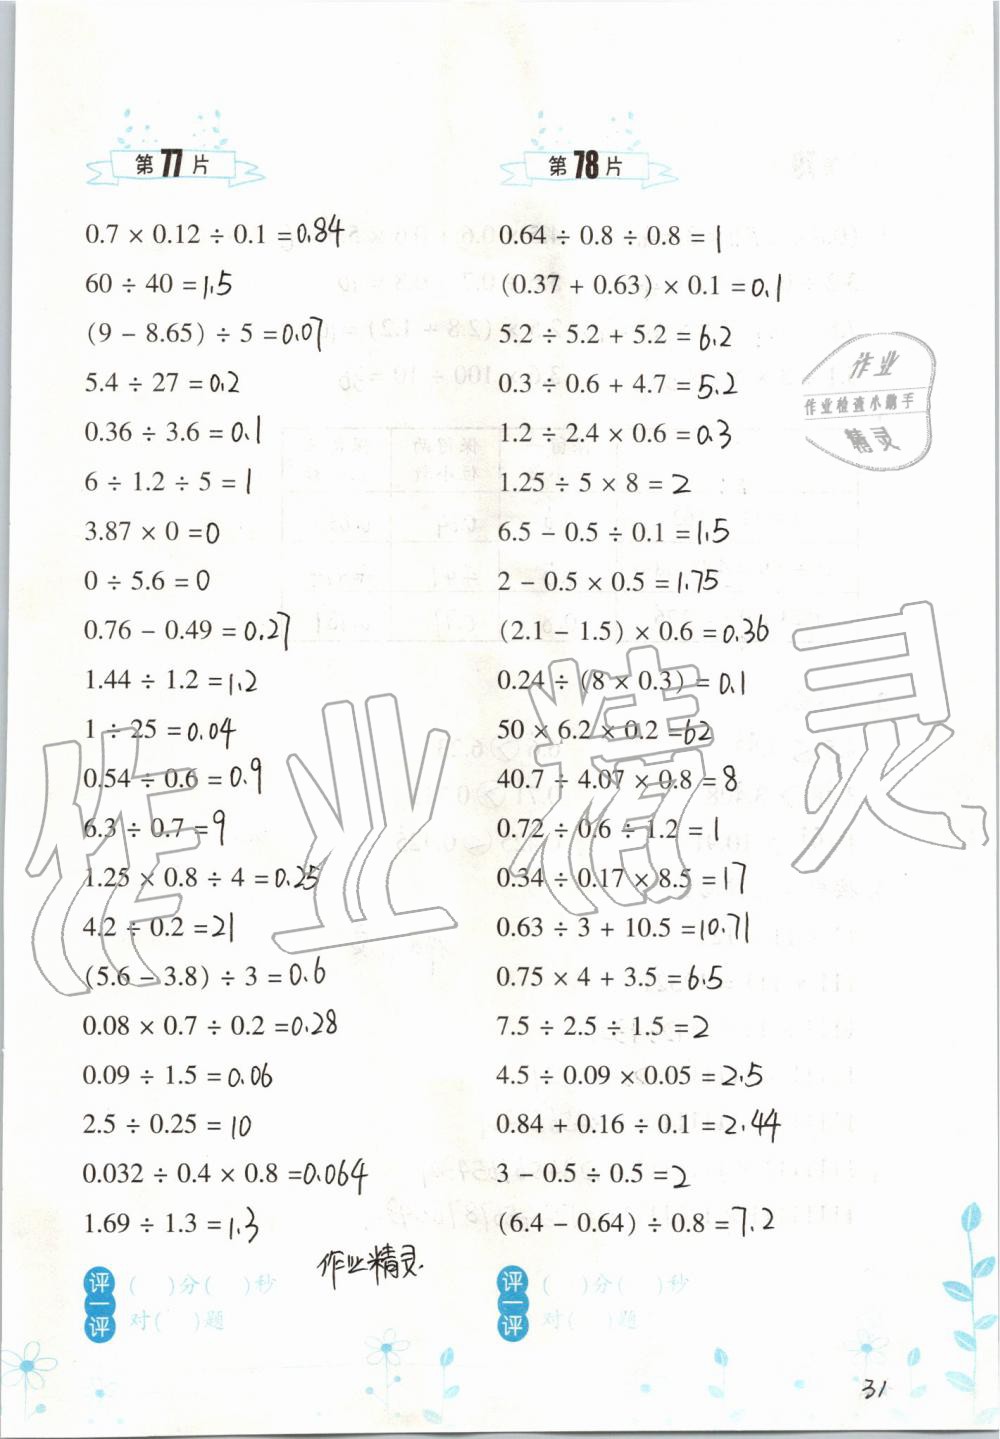 第77片
0.7 × 0.12 ÷ 0.1 = 0.84
60 ÷ 40 = 1.5
(9 − 8.65) ÷ 5 = 0.07
5.4 ÷ 27 = 0.2
0.36 ÷ 3.6 = 0.1
6 ÷ 1.2 ÷ 5 = 1
3.87 × 0 = 0
0 ÷ 5.6 = 0
0.76 − 0.49 = 0.27
1.44 ÷ 1.2 = 1.2
1 ÷ 25 = 0.04
0.54 ÷ 0.6 = 0.9
6.3 ÷ 0.7 = 9
1.25 × 0.8 ÷ 4 = 0.25
4.2 ÷ 0.2 = 21
(5.6 − 3.8) ÷ 3 = 0.6
0.08 × 0.7 ÷ 0.2 = 0.28
0.09 ÷ 1.5 = 0.06
2.5 ÷ 0.25 = 10
0.032 ÷ 0.4 × 0.8 = 0.064
1.69 ÷ 1.3 = 1.3
作业精灵.
评一评
( )分( )秒
对( )题
第78片
0.64 ÷ 0.8 ÷ 0.8 = 1
(0.37 + 0.63) × 0.1 = 0.1
5.2 ÷ 5.2 + 5.2 = 6.2
0.3 ÷ 0.6 + 4.7 = 5.2
1.2 ÷ 2.4 × 0.6 = 0.3
1.25 ÷ 5 × 8 = 2
6.5 − 0.5 ÷ 0.1 = 1.5
2 − 0.5 × 0.5 = 1.75
(2.1 − 1.5) × 0.6 = 0.36
0.24 ÷ (8 × 0.3) = 0.1
50 × 6.2 × 0.2 = 62
40.7 ÷ 4.07 × 0.8 = 8
0.72 ÷ 0.6 ÷ 1.2 = 1
0.34 ÷ 0.17 × 8.5 = 17
0.63 ÷ 3 + 10.5 = 10.71
0.75 × 4 + 3.5 = 6.5
7.5 ÷ 2.5 ÷ 1.5 = 2
4.5 ÷ 0.09 × 0.05 = 2.5
0.84 + 0.16 ÷ 0.1 = 2.44
3 − 0.5 ÷ 0.5 = 2
(6.4 − 0.64) ÷ 0.8 = 7.2
评一评
( )分( )秒
对( )题
作业
作业检查小助手
精灵
作业精灵
31